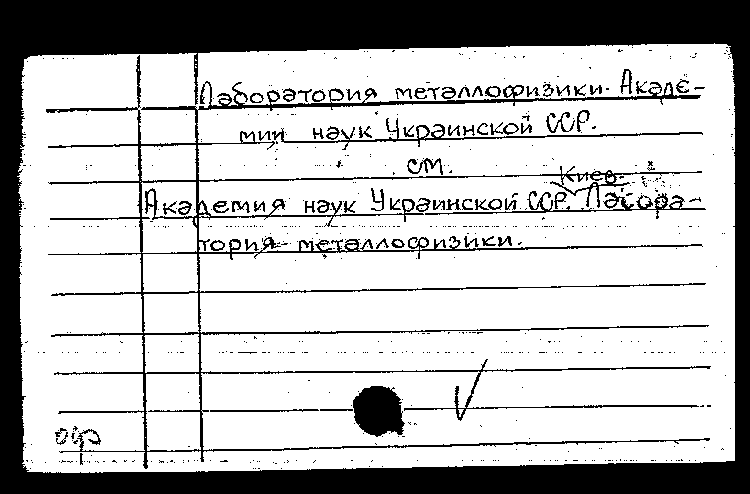 Лаборатория металлофизики. Акаде-
мии наук Украинской ССР.
см.
Киев.
Академия наук Украинской ССР. Лабора-
тория металлофизики.